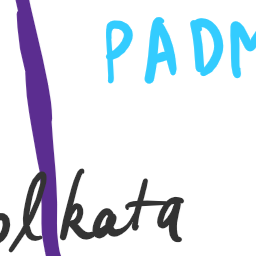 PADM
olkata